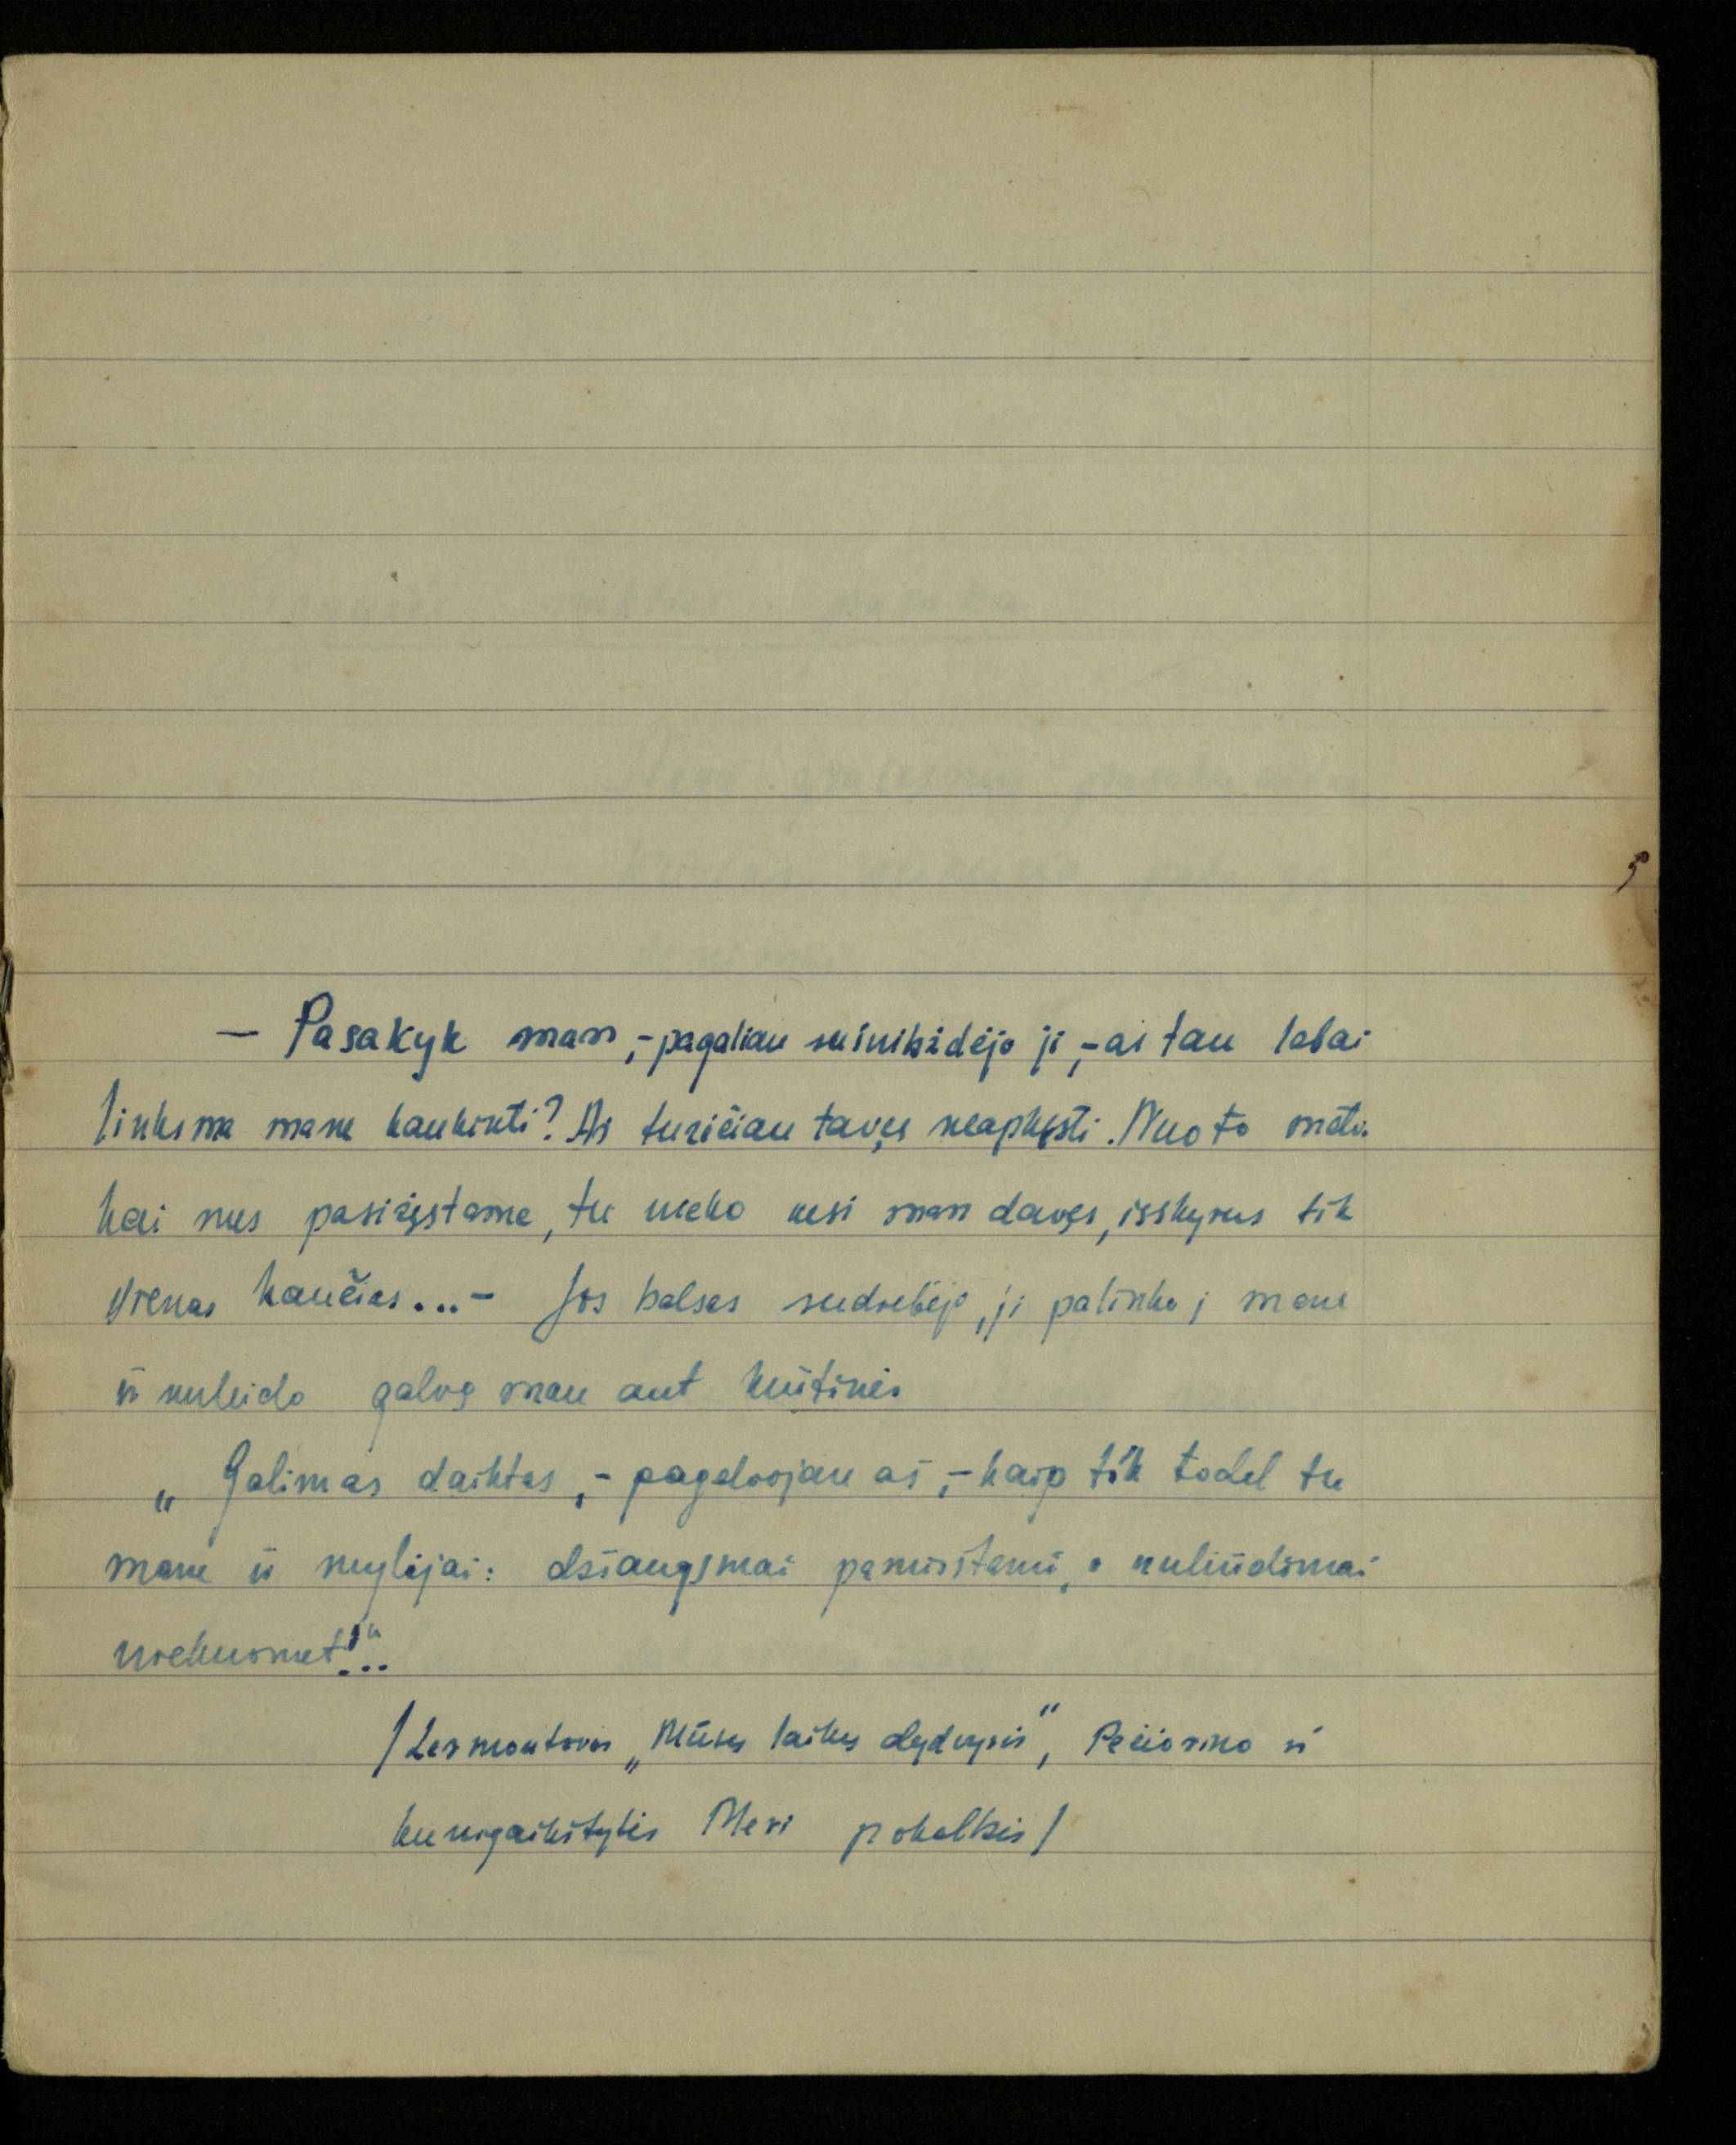 — Pasakyk man, - pagaliau sušnibždėjo ji, - ar tau labai
linksma mane kankinti? Aš turėčiau tavęs neapkęsti. Nuo to meto
kai mes pasižįstame, tu nieko nesi man davęs, isskyrus tik
vienas kančias...- Jos balsas sudrebėjo, ji palinko į mane
ir nuleido galvą man ant krūtinės
„Galimas daiktas, - pagalvojau aš, - kaip tik todel tu
mane ir mylėjai: džiaugsmai pamirštami, o nuliūdimai
niekuomet!..."
/Lermontovas „Mūsų laikų didvyris", Pečiorino ir
kunigaikštytės Meri pokalbis/